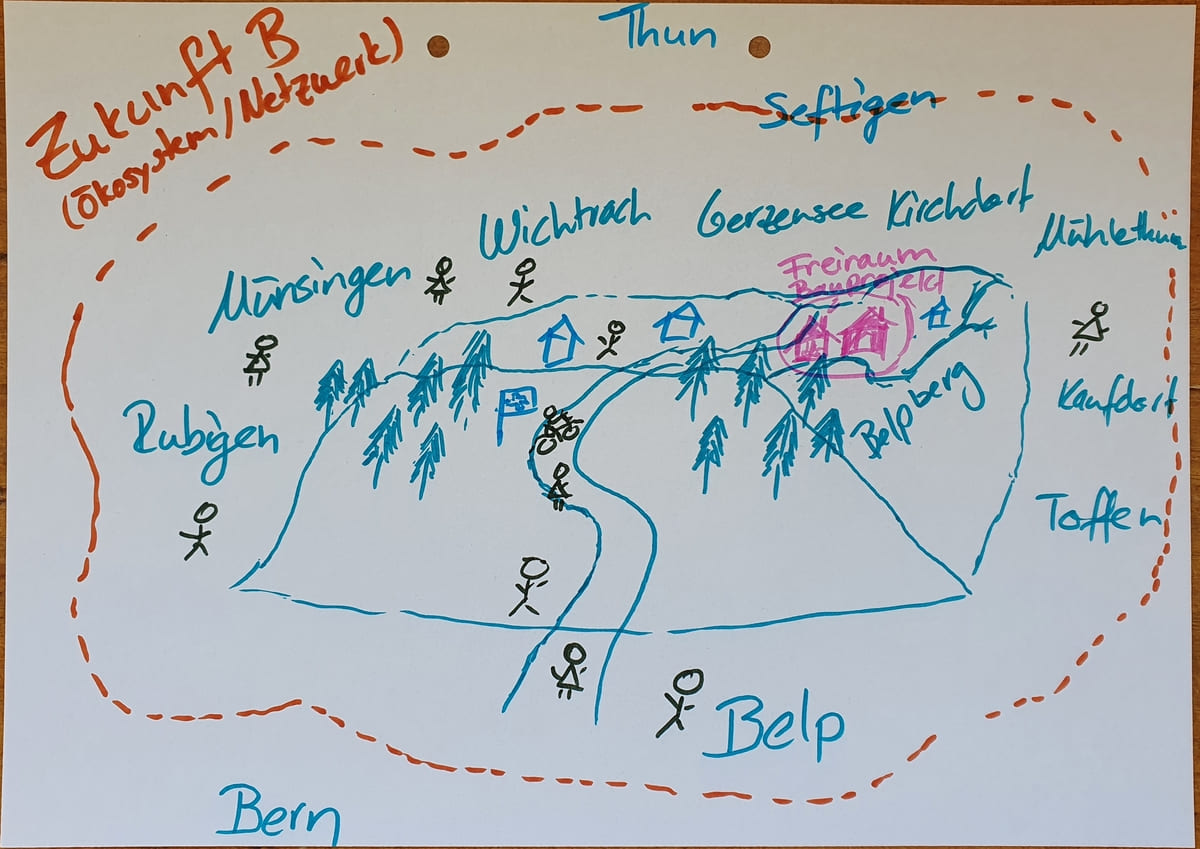 Zukunft B
(Ökosystem/Netzwerk)
Thun
Seftigen
Wichtrach
Gerzensee
Kirchdorf
Mühlethurn
Münsingen
Freiraum
Bauprojekt
Rubigen
Belpberg
Kaufdorf
Toffen
Belp
Bern